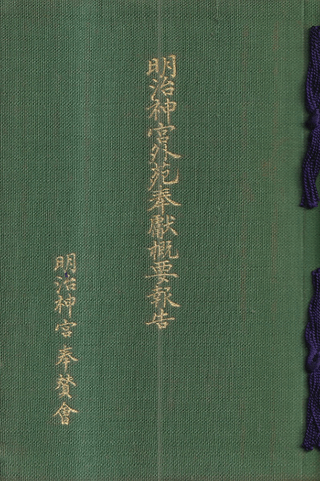 明治神宮外苑奉獻概要報告
明治神宮奉賛會